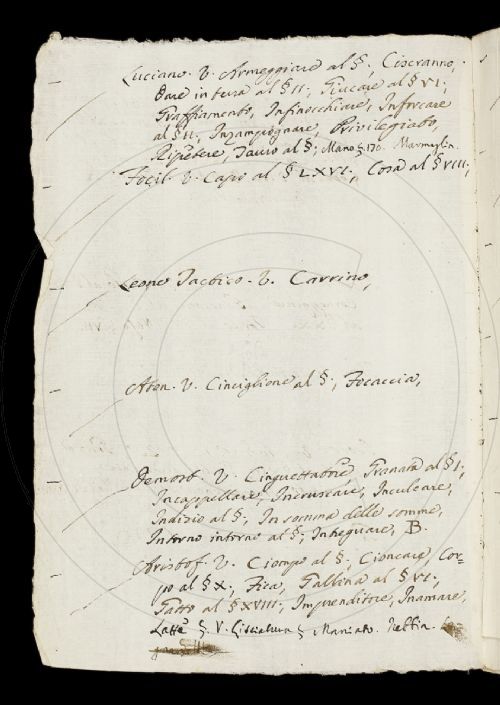 Luciano. V. Armeggiare al §; Ciscranno,
Dare in terra al § II; Giucare al § VI;
Graffiamento, Infinocchiare, Inforcare
al § II; Inzampognare, Privilegiato,
Ripetere, Tauro al §; Mano § 170. Marmeglia.
Focil. V. Capo al § LXVI; Cosa al § VIII;
Leone V. Carrino,
Aten. V. Cinciglione al §; Focaccia,
Demost. V. Cinguettatore Granata al § I;
Incappellare, Incruscare, Inculcare,
Indizio al §; In somma delle somme,
Intorno intorno al §; Inseguare, B.
Aristof. V. Ciompo al §; Cioncare, Cor=
po al § X; Fica, Gallina al § VI;
Gatto al § XVIII; Imprenditore, Inamare,
Latte § V. Lisciatura § Maniato.